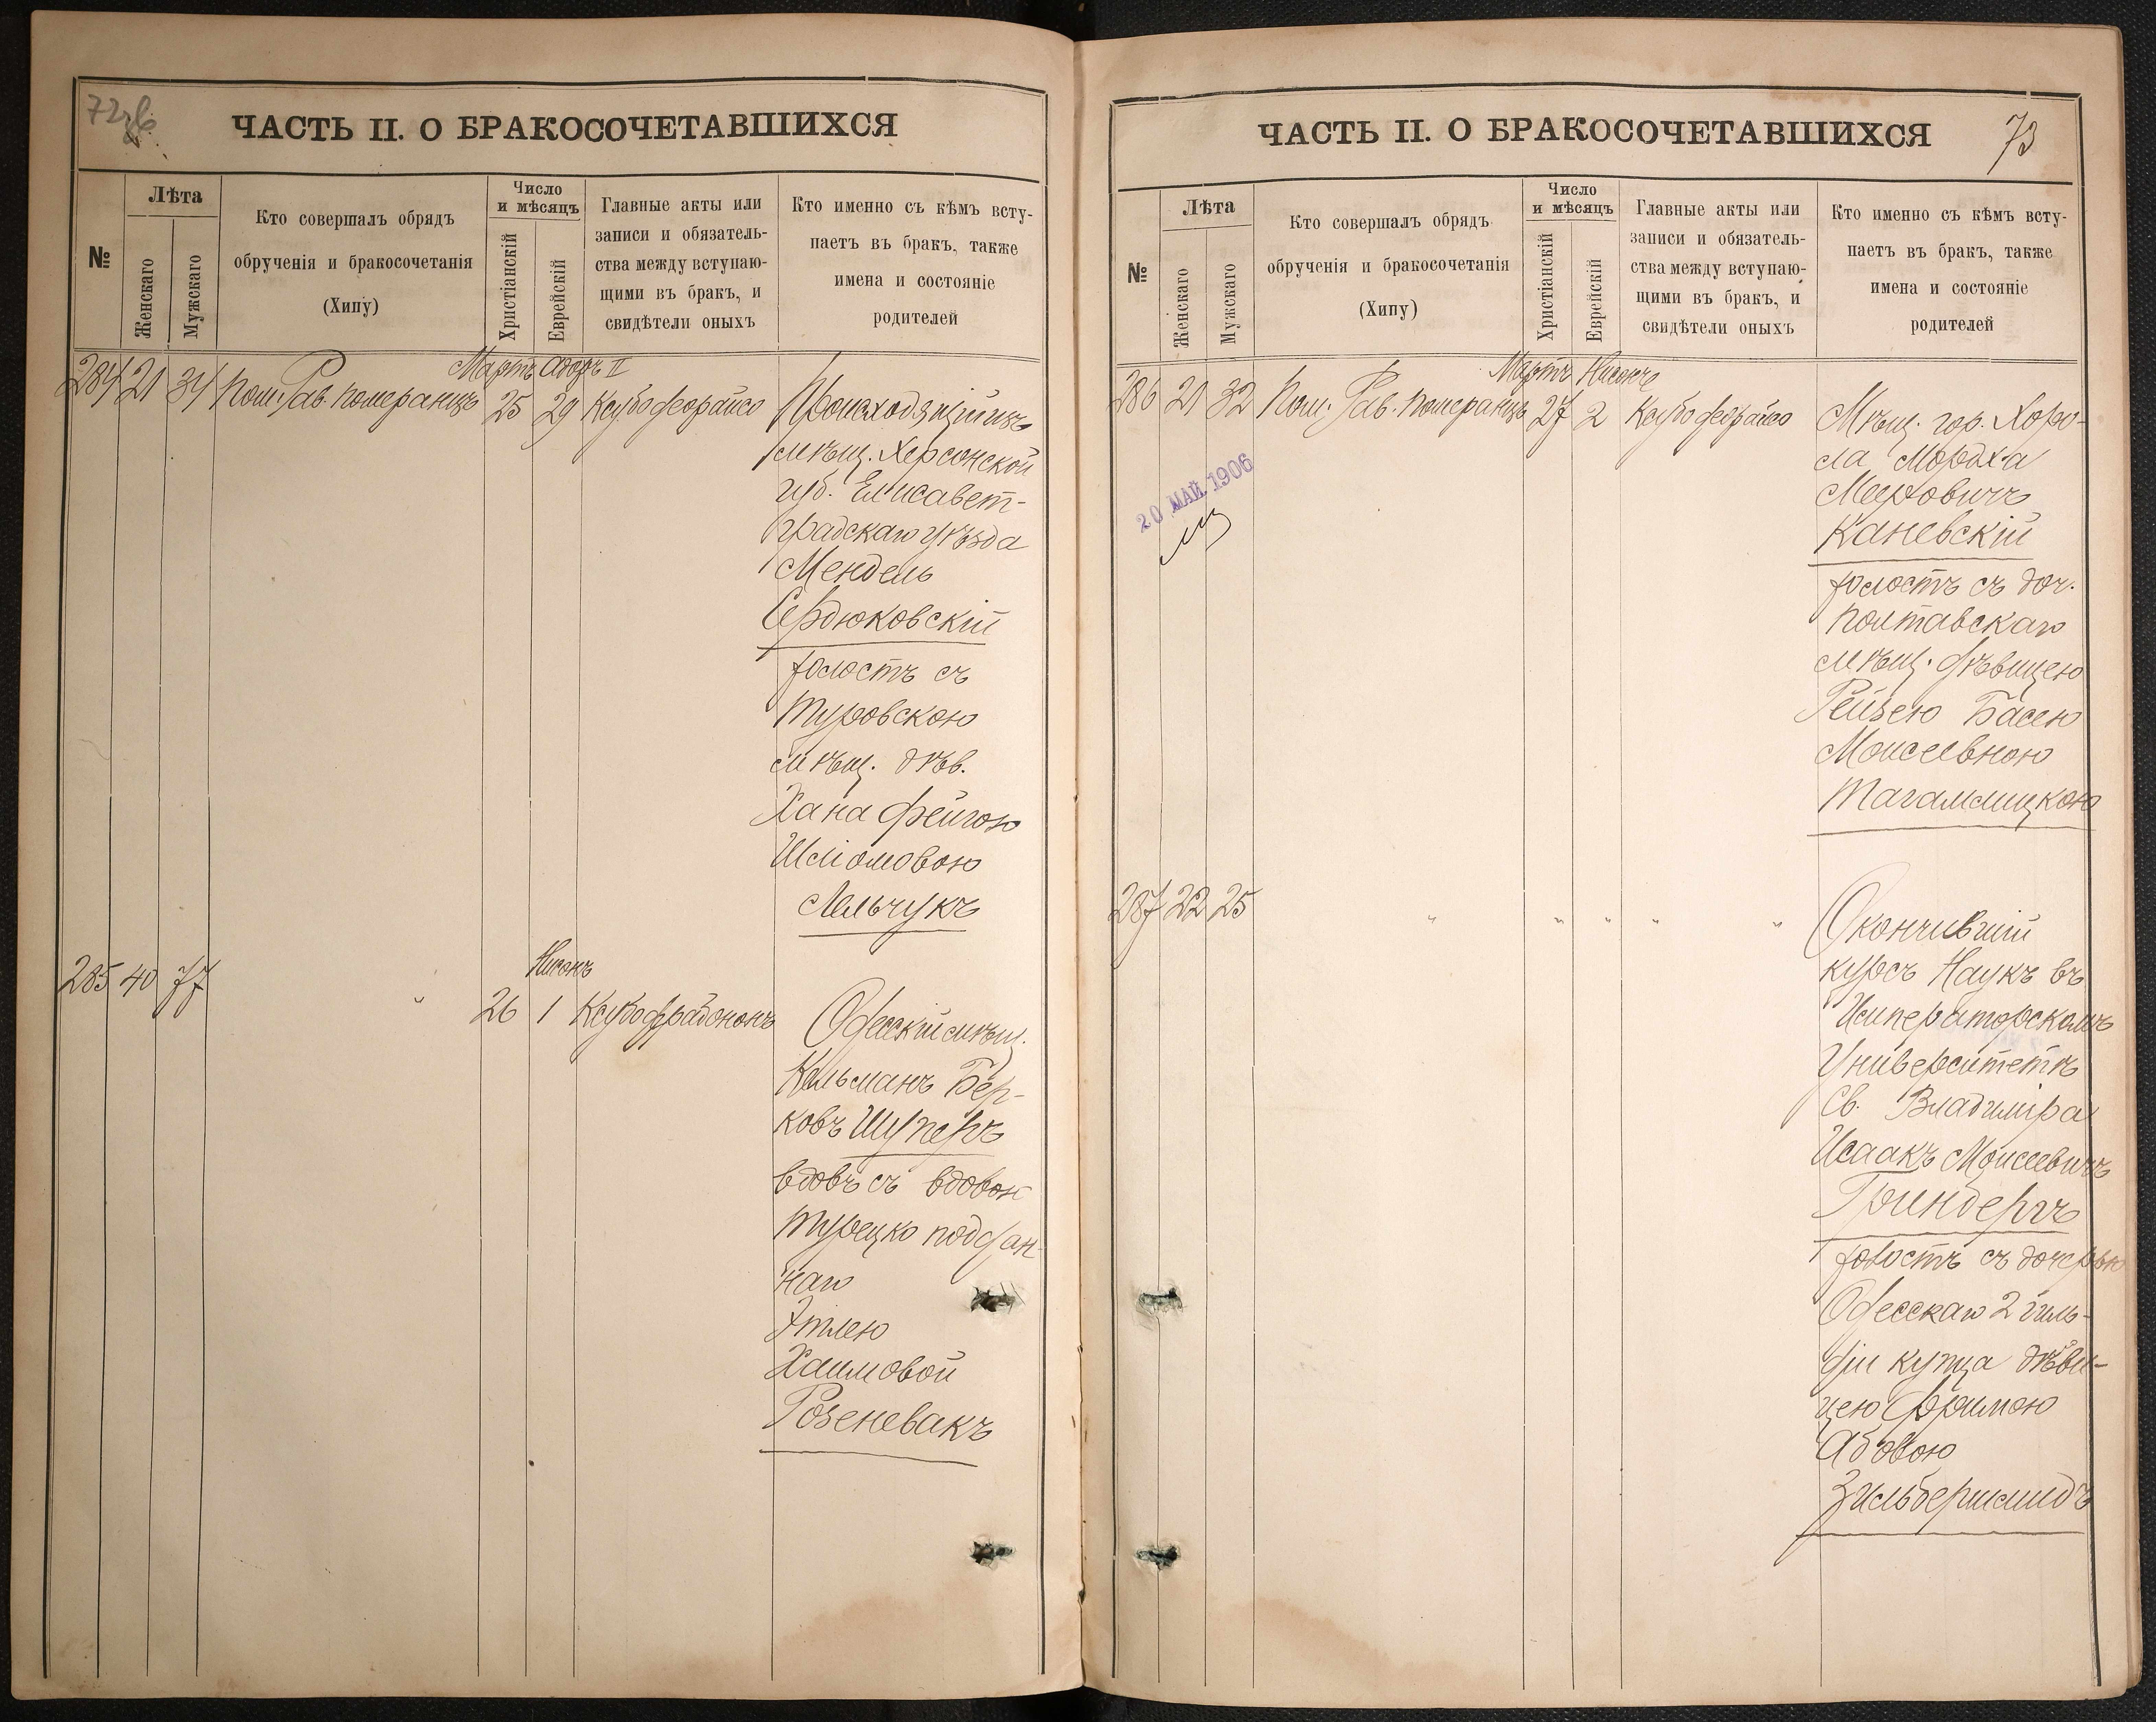 72об
ЧАСТЬ II. О БРАКОСОЧЕТАВШИХСЯ
№
Лѣта
Женскаго
Мужскаго
Кто совершалъ обрядъ
обрученія и бракосочетанія
(Хипу)
Число
и мѣсяцъ
Христіанскій
Еврейскій
Главные акты или
записи и обязатель-
ства между вступаю-
щими въ бракъ, и
свидѣтели оныхъ
Кто именно съ кѣмъ всту-
паетъ въ бракъ, также
имена и состояніе
родителей
Мартъ Адаръ II
284 21 34 Пом. Рав. Померанцъ 25 29
Происходящій изъ
мѣщ. Херсонской
губ. Елисавет-
градскаго уѣзда
Мендель
Сердюковскій
холостъ съ
Туровскою
мѣщ. дѣв.
Хана Фейгою
Шліомовою
Лельчукъ
Нисонъ
285 40 77 " 26 1
Одесскій мѣщ.
Кельманъ Бер-
ковъ Шуперъ
вдовъ съ вдовой
Турецко поддан-
наго
Этлею
Хаимовой
Розеневакъ
73
ЧАСТЬ II. О БРАКОСОЧЕТАВШИХСЯ
№
Лѣта
Женскаго
Мужскаго
Кто совершалъ обрядъ
обрученія и бракосочетанія
(Хипу)
Число
и мѣсяцъ
Христіанскій
Еврейскій
Главные акты или
записи и обязатель-
ства между вступаю-
щими въ бракъ, и
свидѣтели оныхъ
Кто именно съ кѣмъ всту-
паетъ въ бракъ, также
имена и состояніе
родителей
Мартъ Нисонъ
286 21 32 Пом. Рав. Померанцъ 27 2
20 МАЙ 1906
Мѣщ. гор. Хоро-
ла Мордха
Мееровичъ
Каневскій
холостъ съ доч.
Полтавскаго
мѣщ. дѣвицею
Рейзею Басею
Моисеевною
Тагамлицкою
287 22 25 " " " " "
Окончившій
курсъ Наукъ въ
Императорскомъ
Университетѣ
Св. Владиміра
Исаакъ Моисеевичъ
Гриндергъ
холостъ съ дочерью
Одесскаго 2 гиль-
діи купца дѣви-
цею Фримою
Абовою
Зильбершмидъ